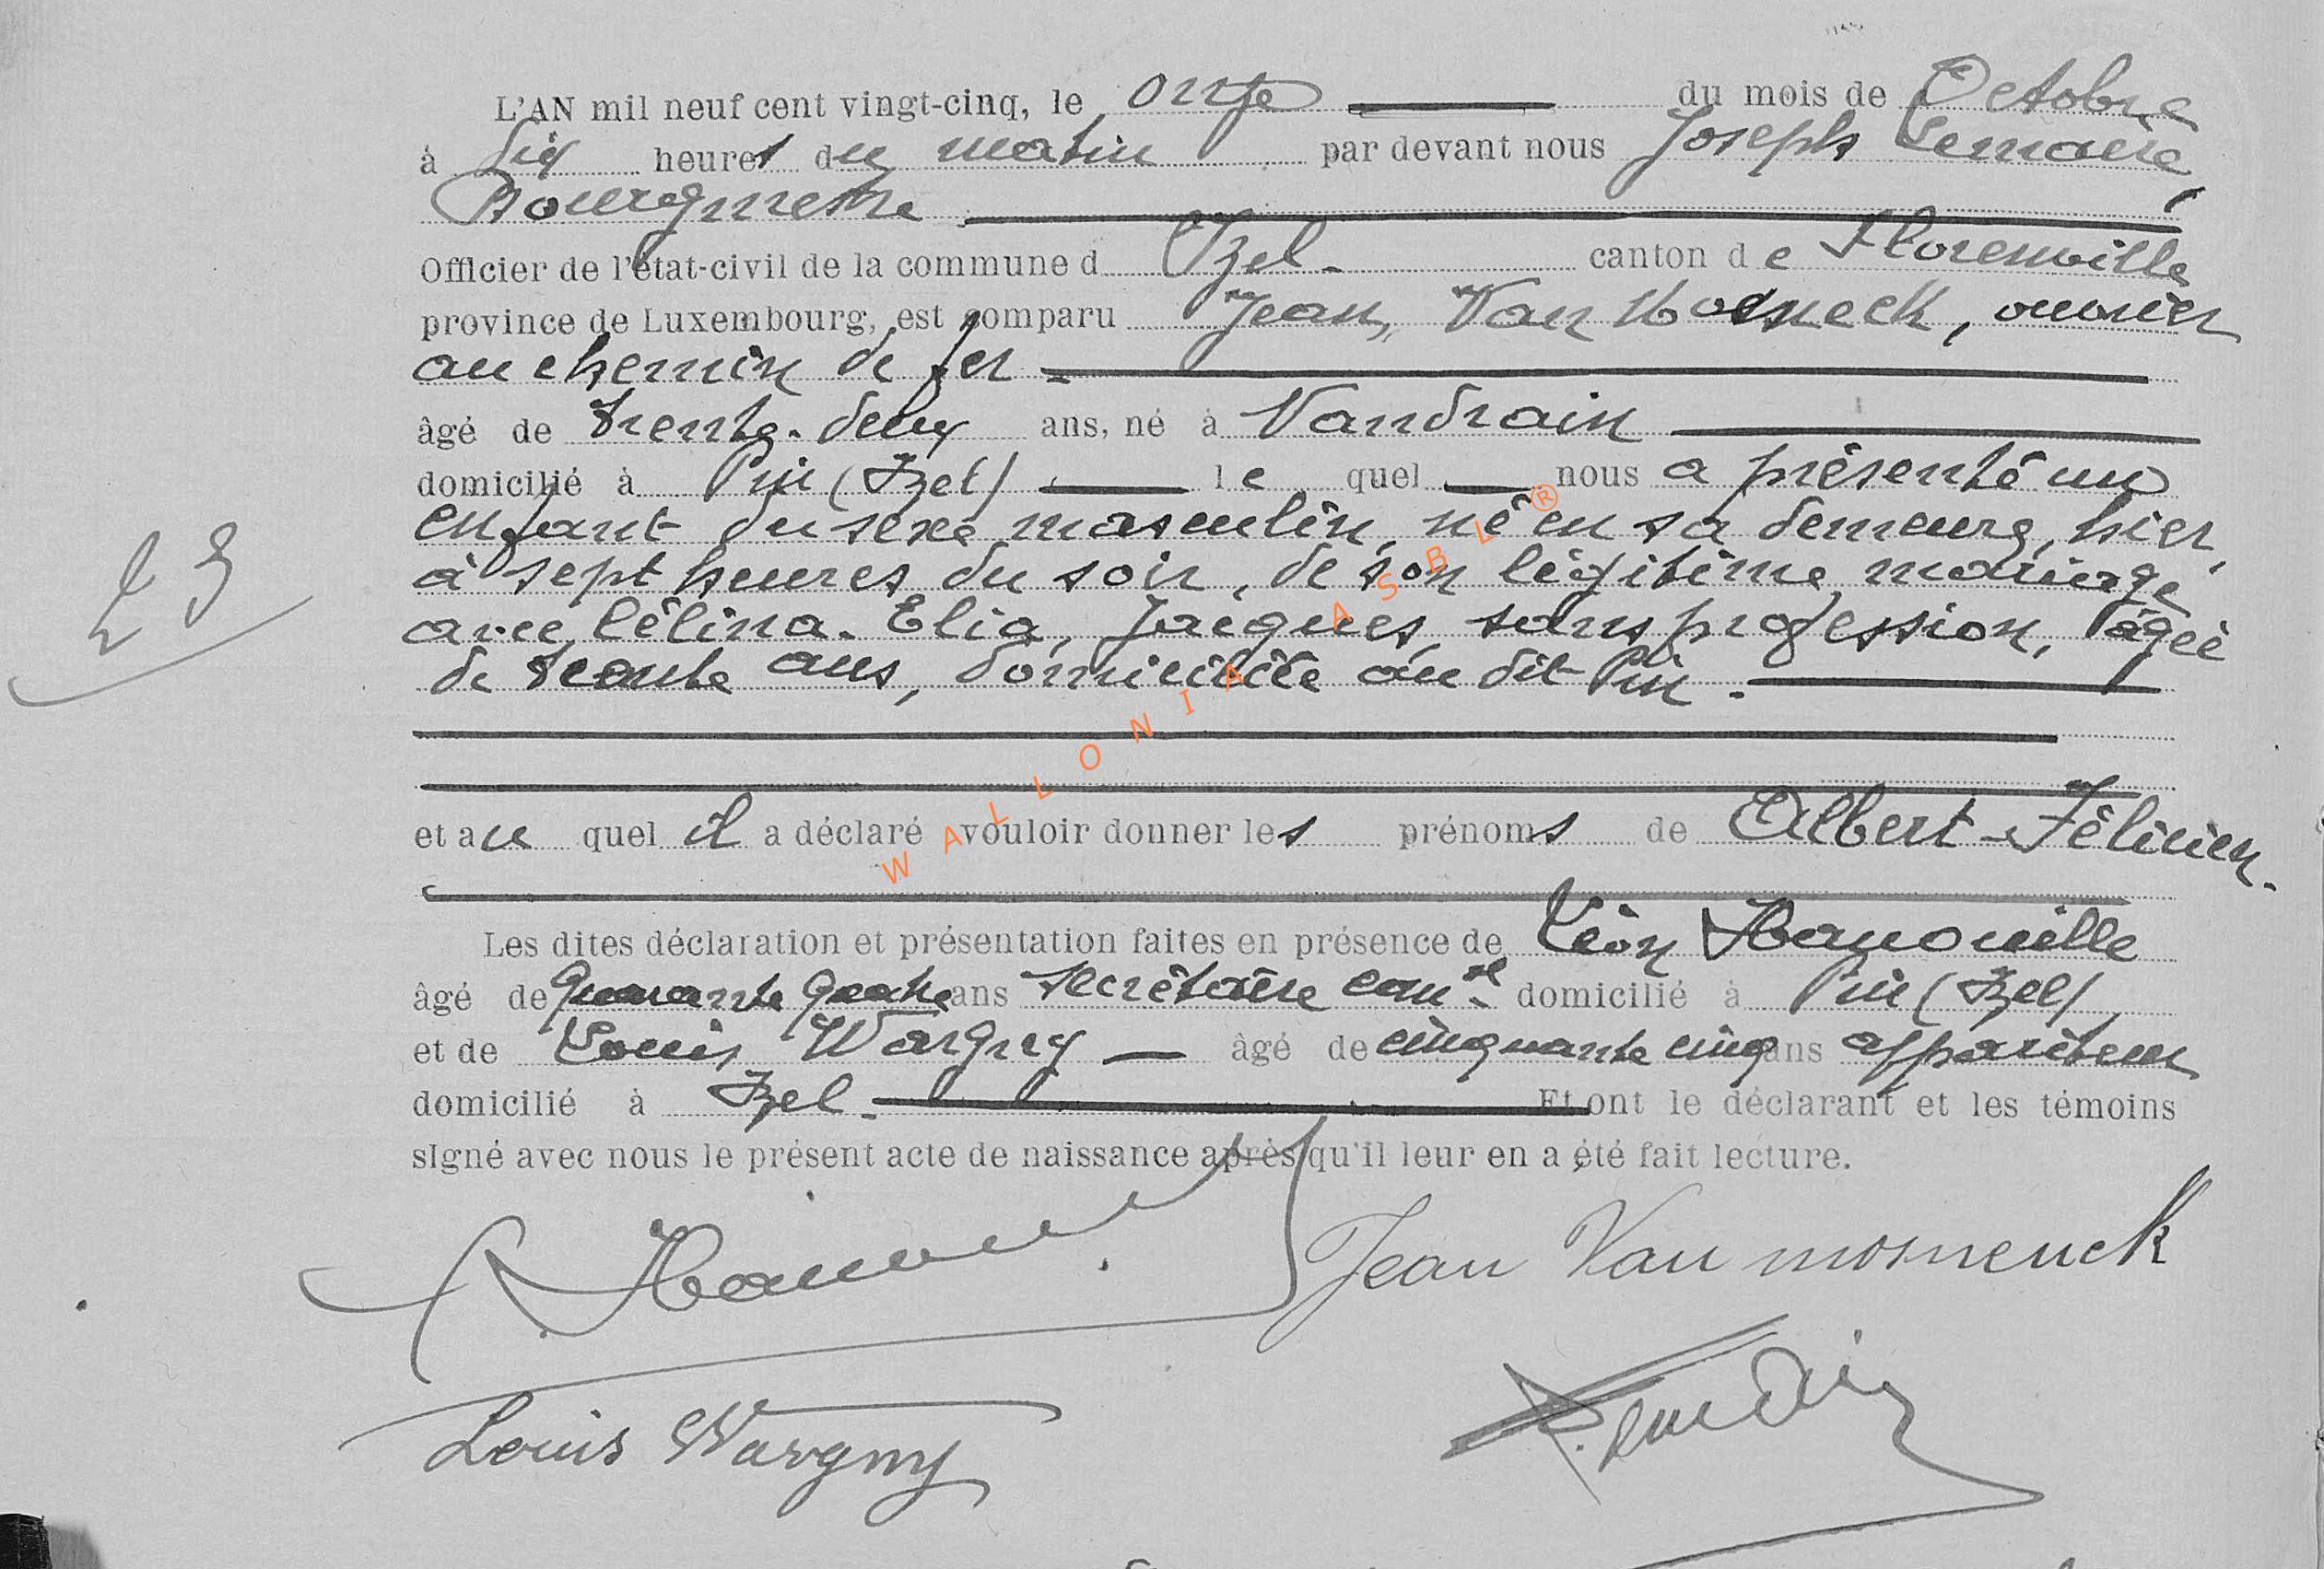 L'AN mil neuf cent vingt-cinq, le onze du mois de Octobre
à dix heures du matin par devant nous Joseph Lemaire,
Bourgmestre
Officier de l'état-civil de la commune d Izel. canton de Florenville
province de Luxembourg, est comparu Jean, Van , ouvrier
au chemin de fer
âgé de trente-deux ans, né à Vaudrain
domicilié à Pin (Izel) le quel nous a présenté un
23
enfant du sexe masculin, né en sa demeure, hier,
à sept heures du soir, de son légitime mariage
avec Célina-Elia, Jacques, sans profession, âgée
de trente ans, domiciliée au dit Pin.
et au quel il a déclaré vouloir donner les prénoms de Albert-Félicien.
Les dites déclaration et présentation faites en présence de Léon Hanouille
âgé de quarante quatre ans secrétaire com.al domicilié à Pin (Izel)
et de Louis Wargny âgé de cinquante cinq ans appariteur
domicilié à Izel. Et ont le déclarant et les témoins
signé avec nous le présent acte de naissance après qu'il leur en a été fait lecture.
Jean Van mosneuck
Louis Wargny
WALLONIA ASBL ®